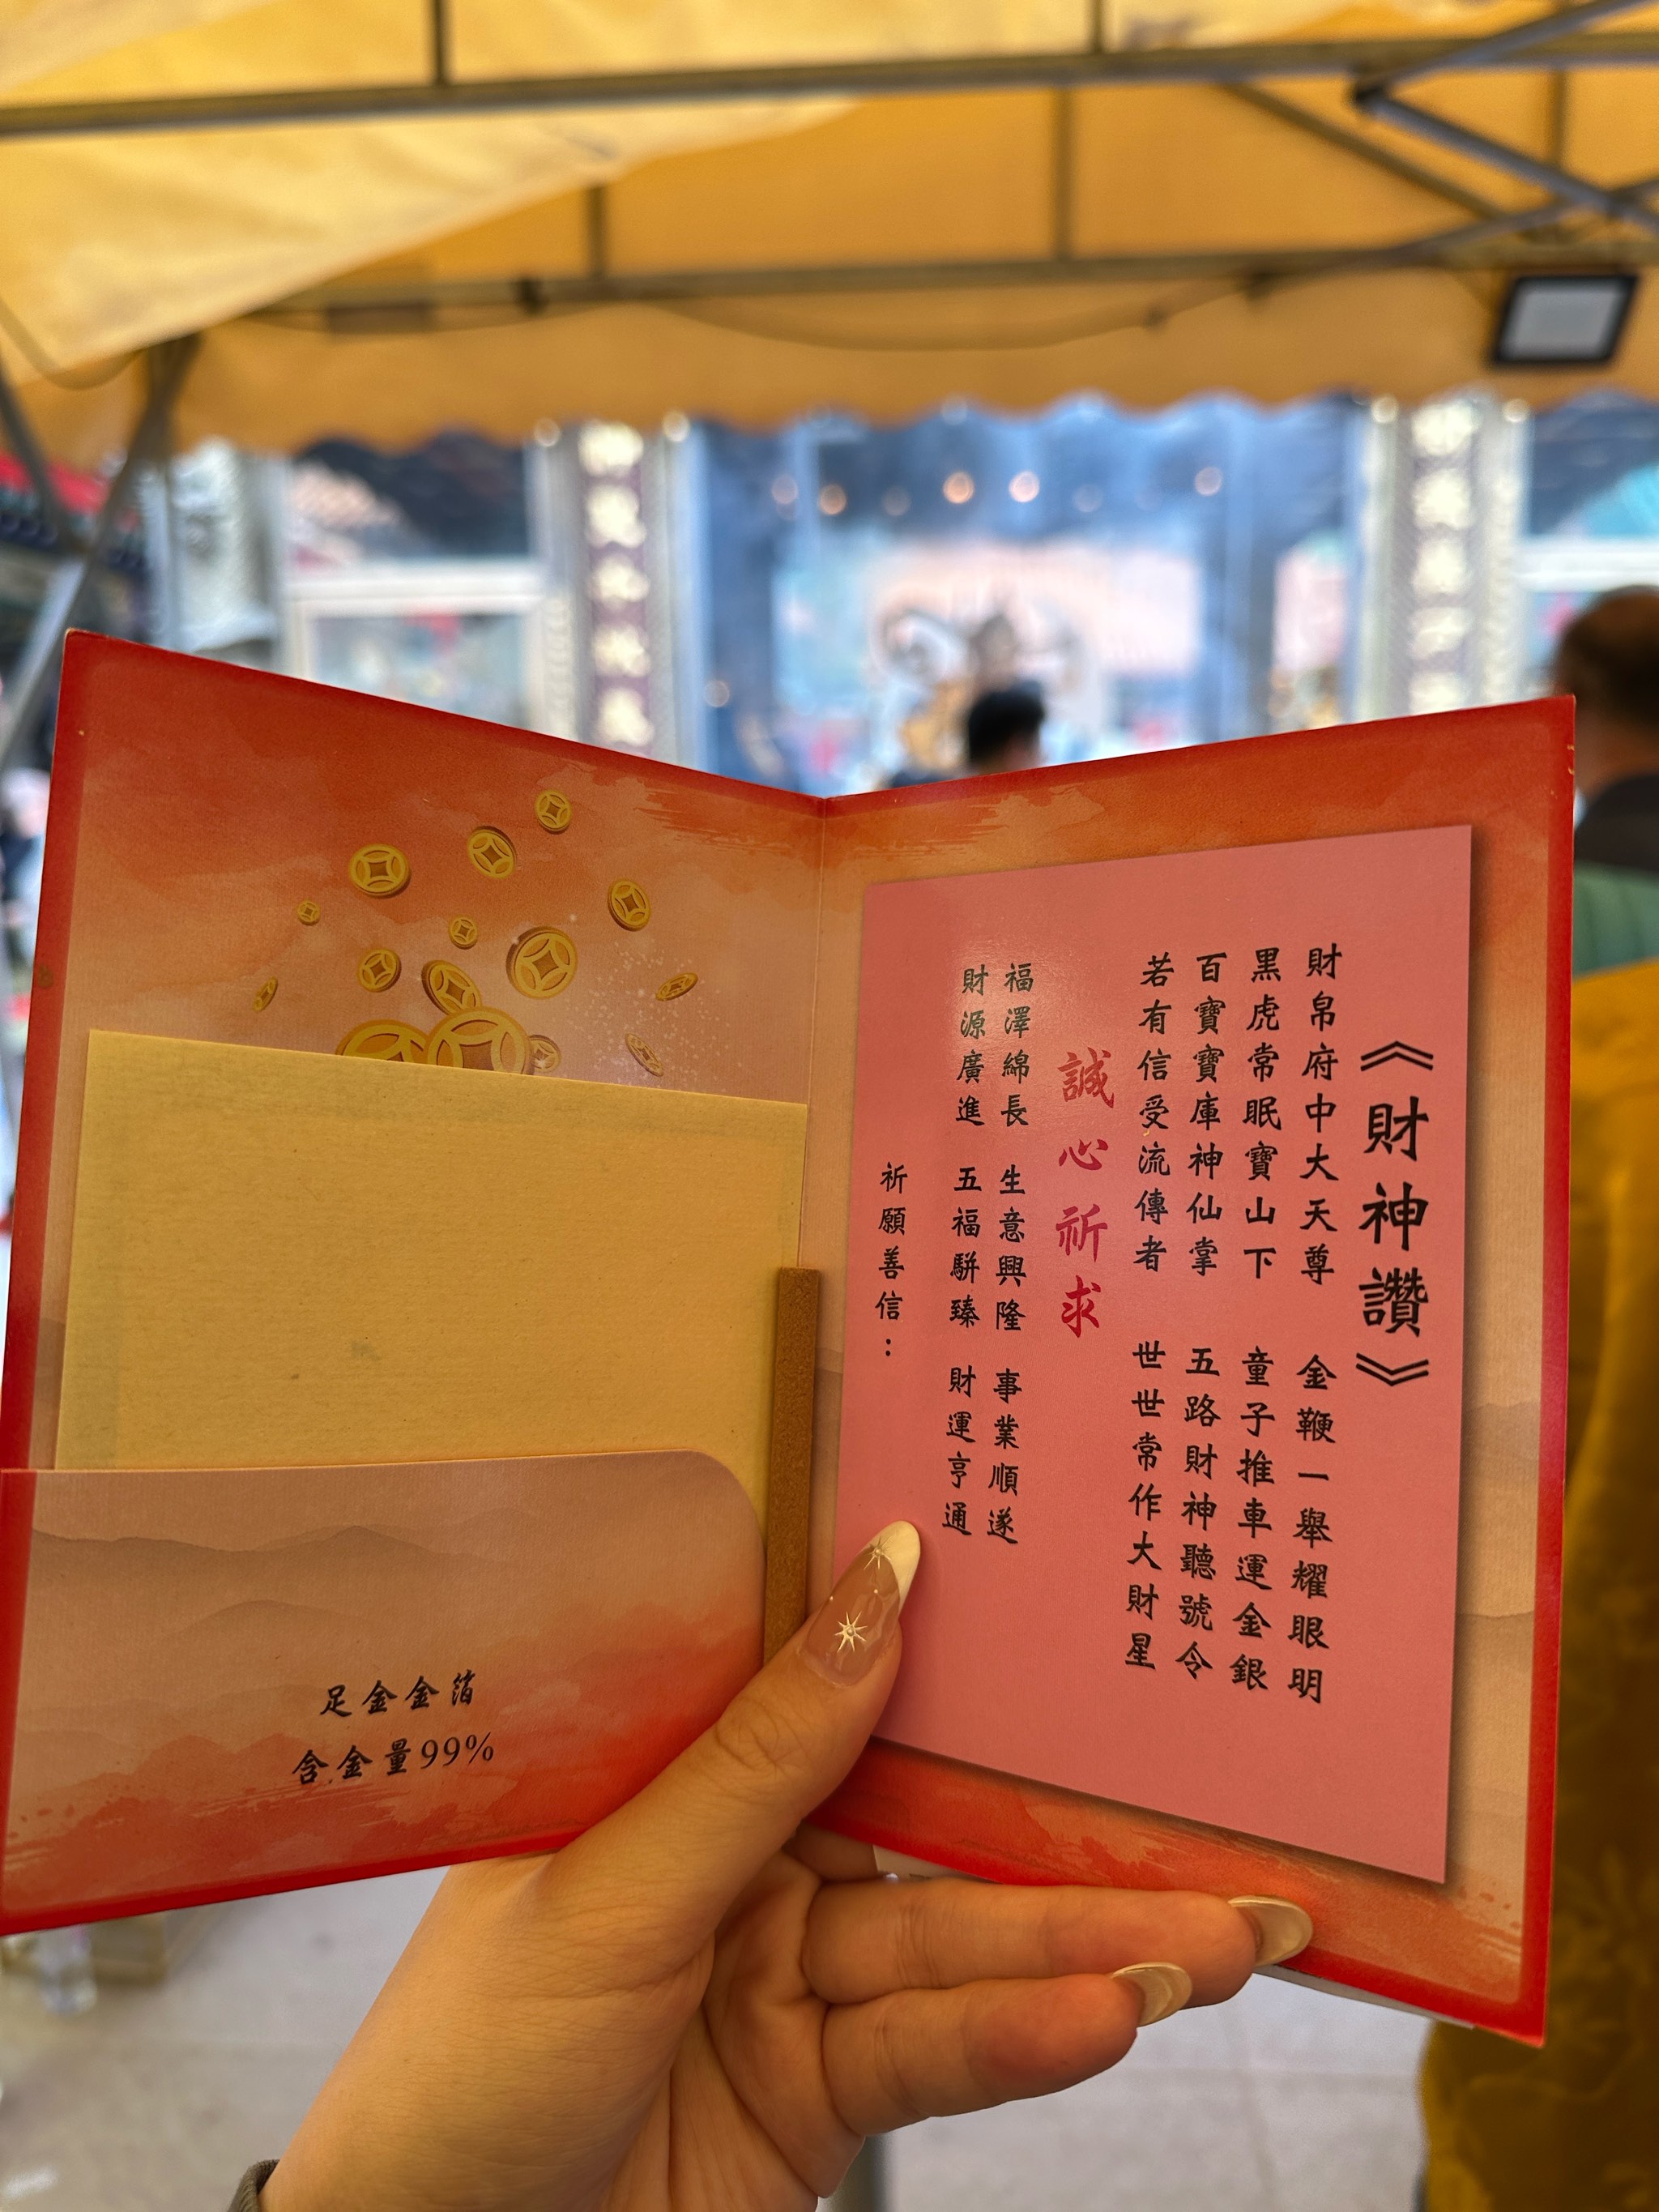 《財神讚》
財帛府中大天尊 金鞭一舉耀眼明
黑虎常眠寶山下 童子推車運金銀
百寶寶庫神仙掌 五路財神聽號令
若有信受流傳者 世世常作大財星
誠心祈求
福澤綿長 生意興隆 事業順遂
財源廣進 五福駢臻 財運亨通
祈願善信：
足金金箔
含金量99%